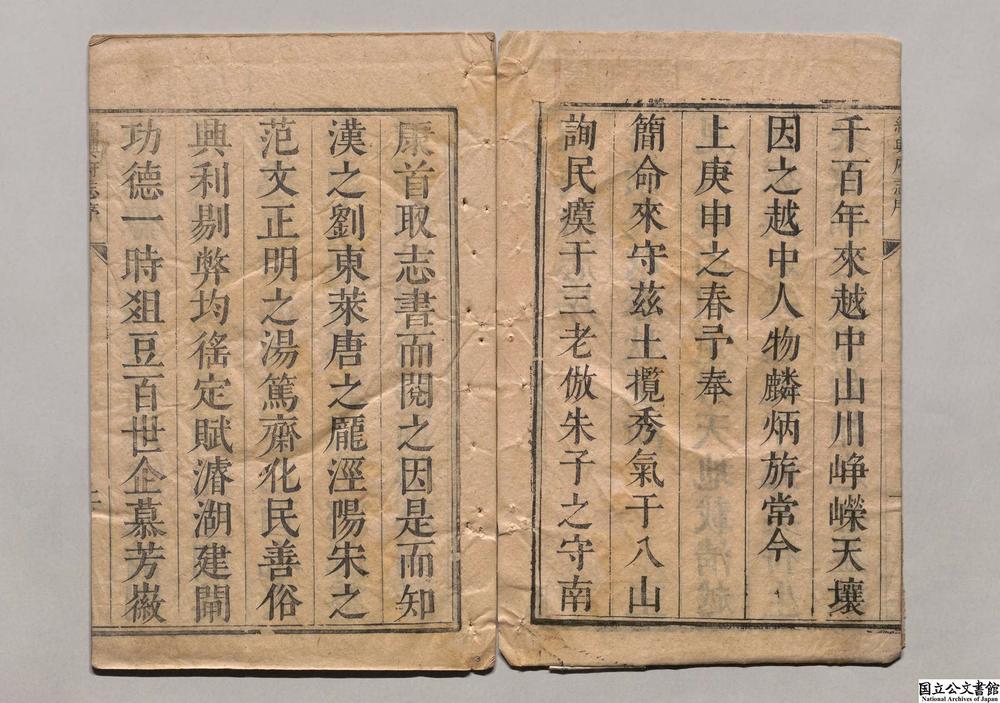 千百年來越中山川崢嶸天壤
因之越中人物麟炳旂常今
上庚申之春予奉
簡命來守茲土攬秀氣于八山
詢民瘼于三老倣朱子之守南
康首取志書而閱之因是而知
漢之劉東萊唐之龐涇陽宋之
范文正明之湯篤齋化民善俗
興利剔弊均徭定賦濬湖建閘
功德一時俎豆百世企慕芳徽
國立公文書館
National Archives of Japan